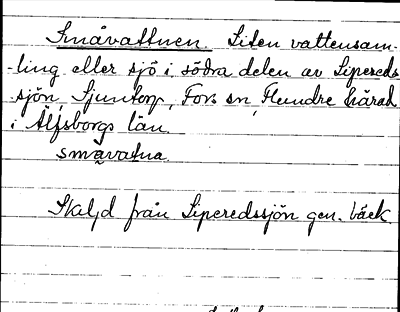 Småvattnen. Liten vattensam-
-ling eller sjö i södra delen av Lipereds
sjön, Sjuntorp, Fors sn, Flundre härad
i Älfsborgs län.
småvatna.
Skiljd från Liperedssjön gen. bäck